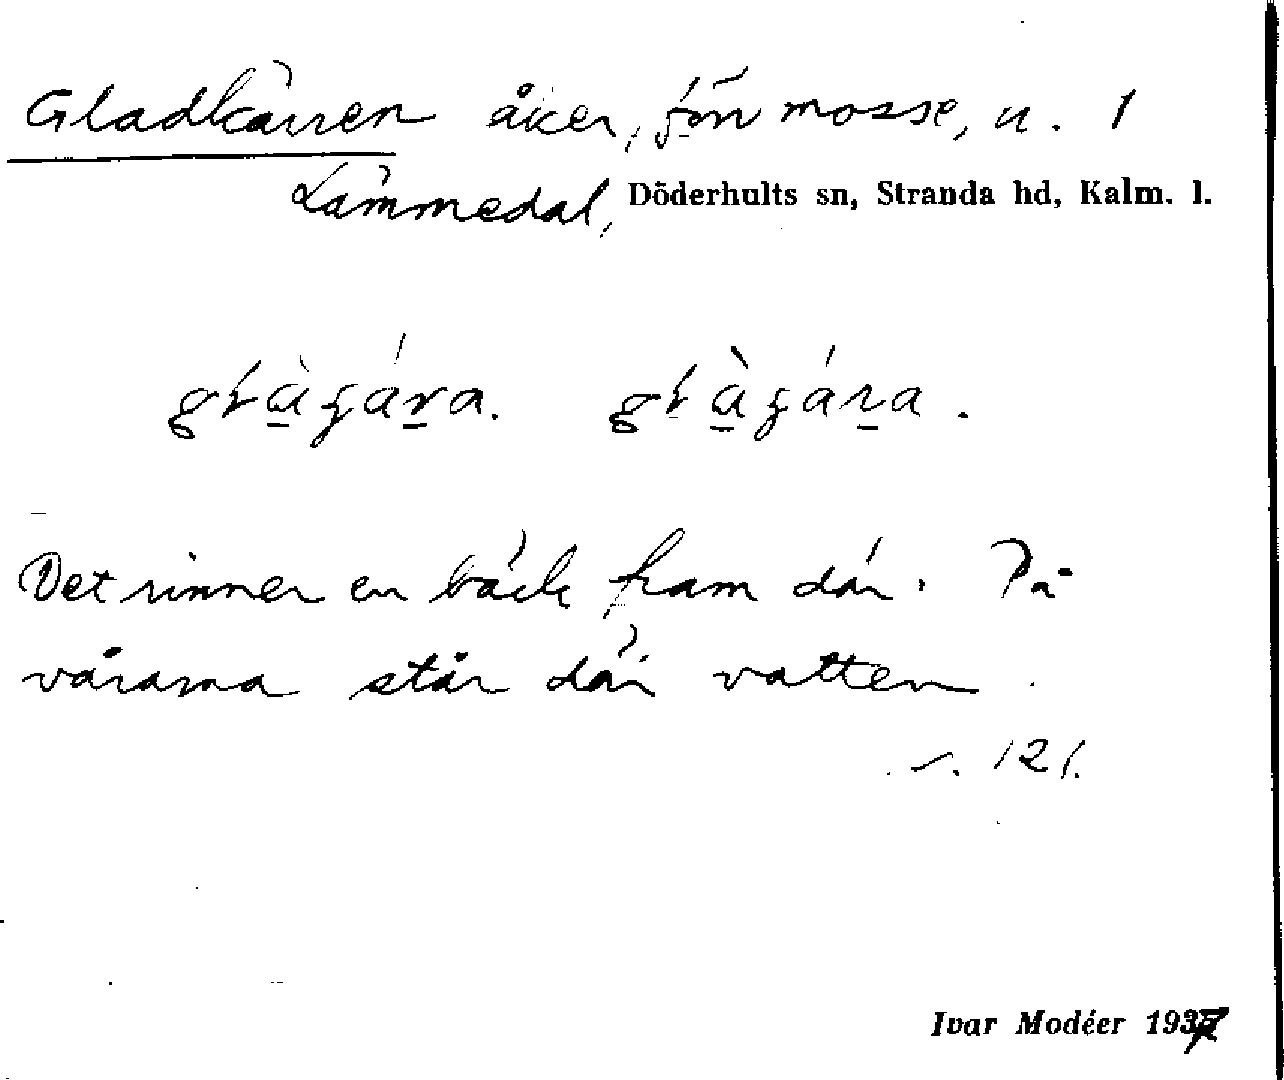 Gladkärren åker, förr mosse, u. 1
Lämmedal, Döderhults sn, Stranda hd, Kalm. l.
Det rinner en bäck fram där. På
vårarna står där vatten.
s. 121.
Ivar Modéer 1937